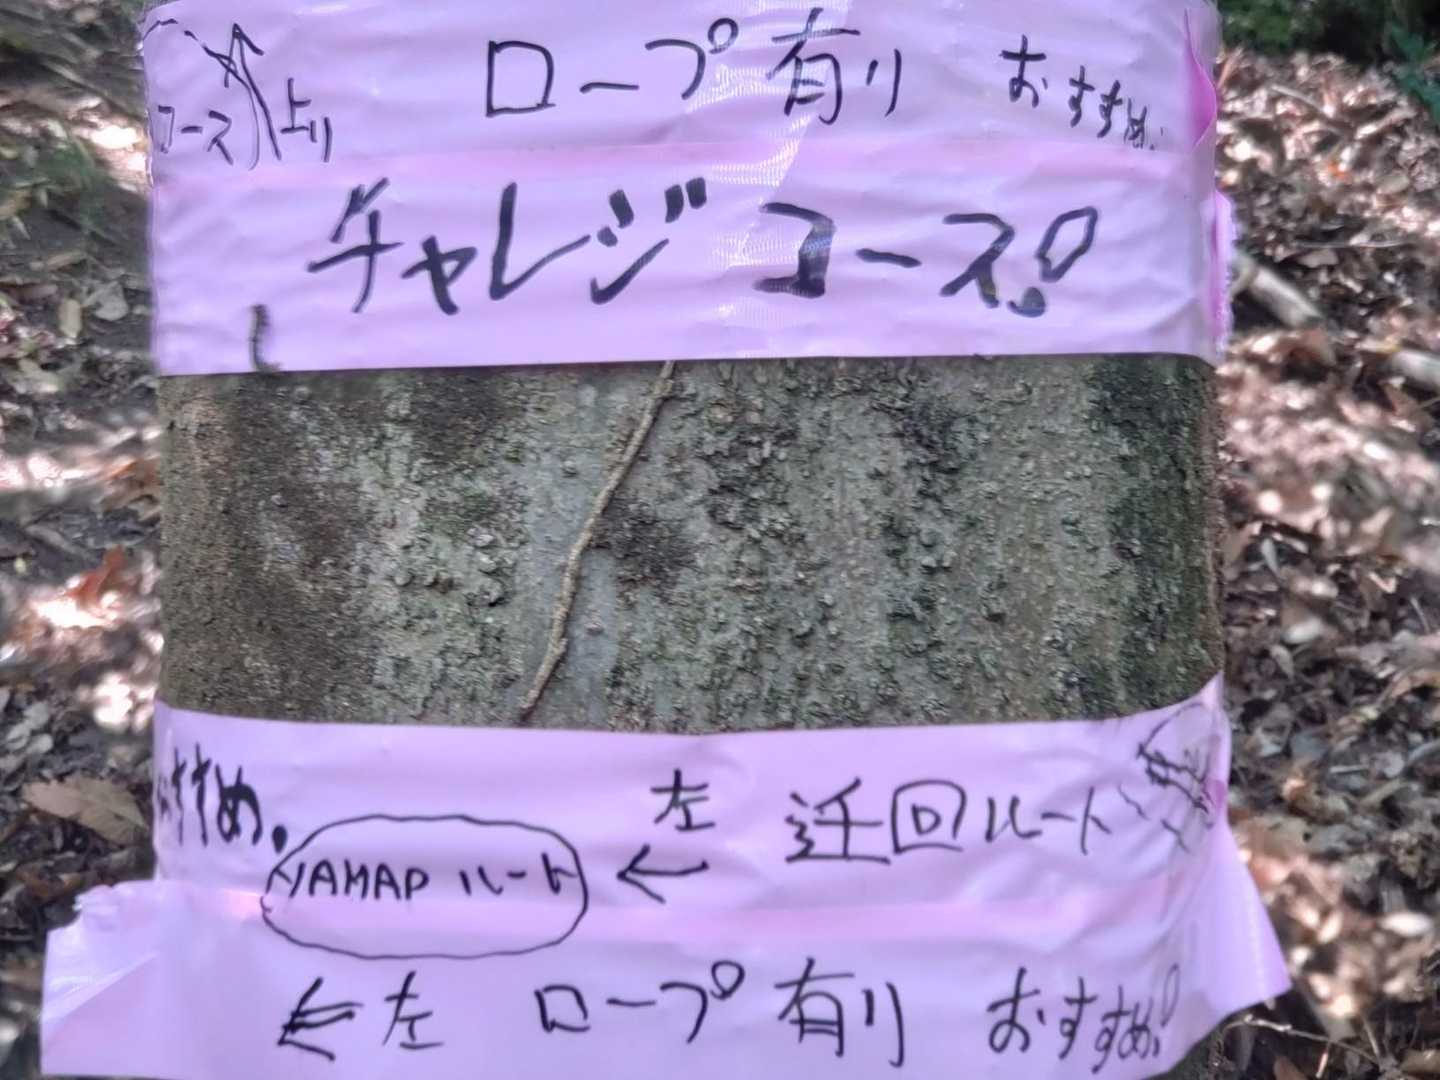 ロープ有り おすすめ.
コース 上り
チャレジコース!
すすめ. 左 迂回ルート
YAMAP ルート ←
← 左 ロープ有り おすすめ!